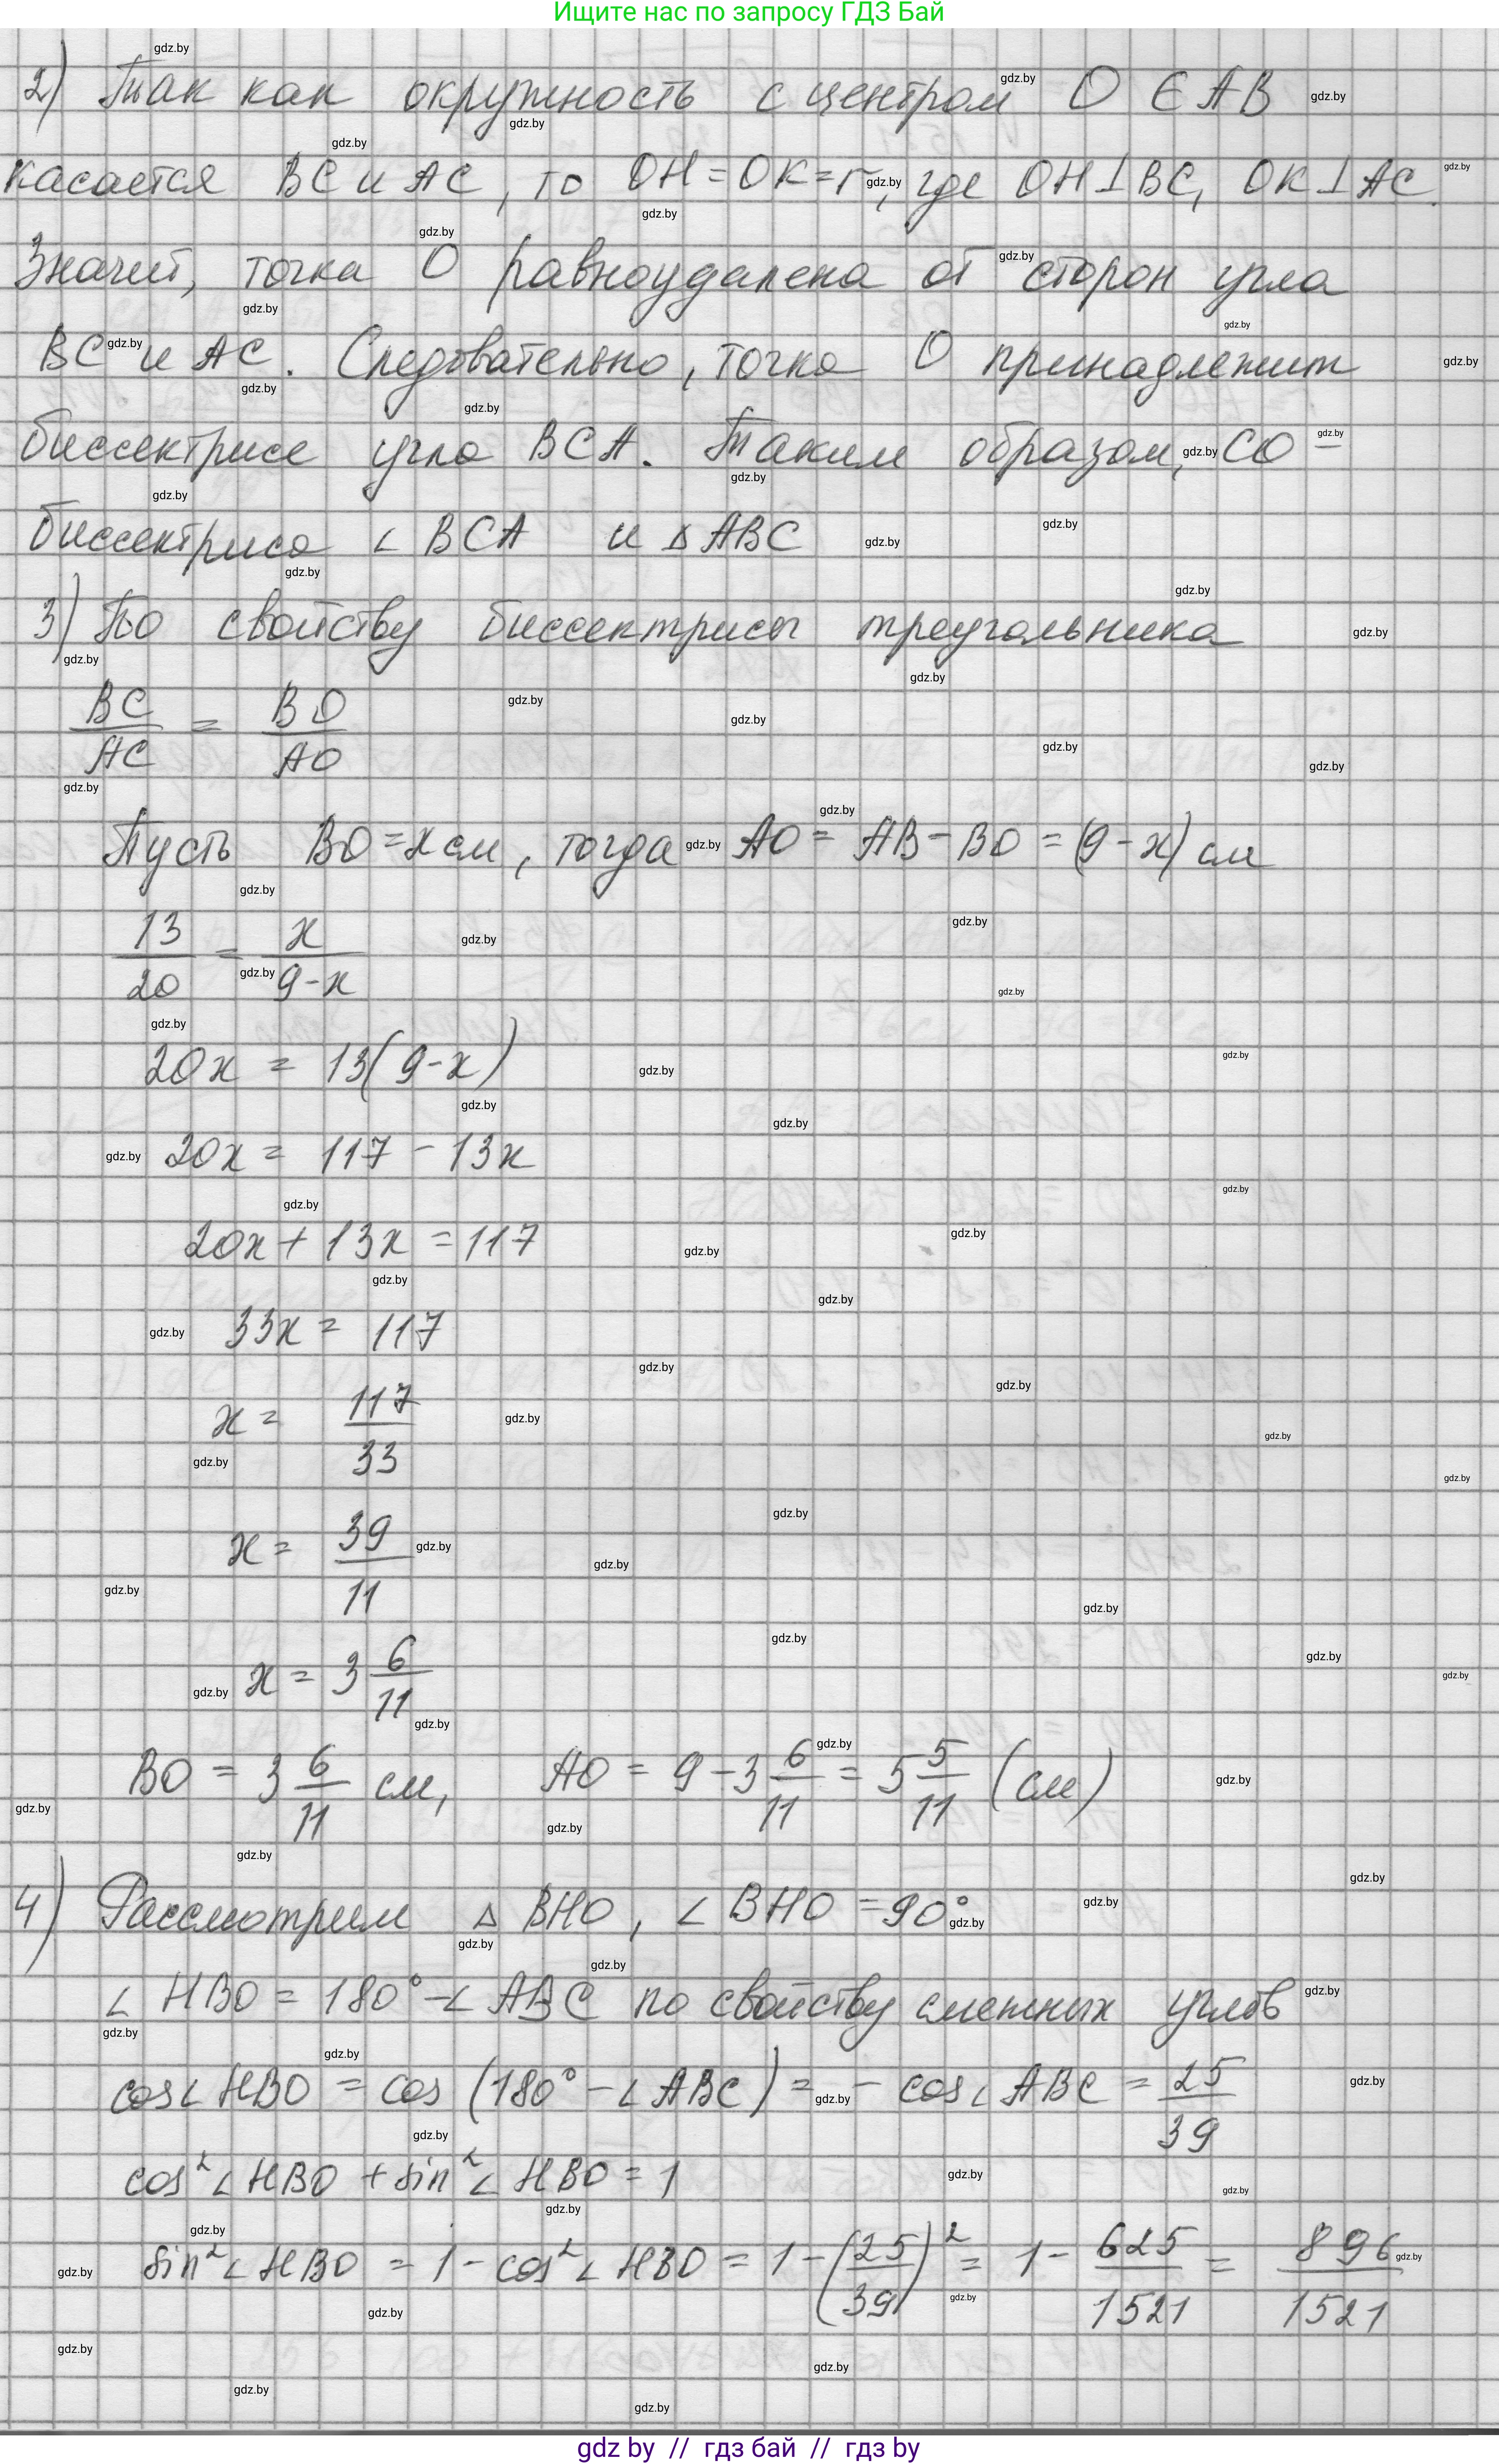 Ищите нас по запросу ГДЗ Бай
2) Так как окружность с центром O ∈ AB
касается BC и AC, то OH = OK = r, где OH ⊥ BC, OK ⊥ AC.
Значит, точка O равноудалена от сторон угла
BC и AC. Следовательно, точка O принадлежит
биссектрисе угла BCA. Таким образом, CO –
биссектриса ∠ BCA и △ ABC
3) По свойству биссектрисы треугольника
BC/AC = BO/AO
Пусть BO = x см, тогда AO = AB - BO = (9 - x) см
13/20 = x/(9-x)
20x = 13(9-x)
20x = 117 - 13x
20x + 13x = 117
33x = 117
x = 117/33
x = 39/11
x = 3 6/11
BO = 3 6/11 см, AO = 9 - 3 6/11 = 5 5/11 (см)
4) Рассмотрим △ BHO, ∠ BHO = 90°
∠ HBO = 180° - ∠ ABC по свойству смежных углов
cos∠ HBO = cos (180° - ∠ ABC) = - cos∠ ABC = 25/39
cos²∠ HBO + sin²∠ HBO = 1
sin²∠ HBO = 1 - cos²∠ HBO = 1 - (25/39)² = 1 - 625/1521 = 896/1521
gdz by // гдз бай // гдз by